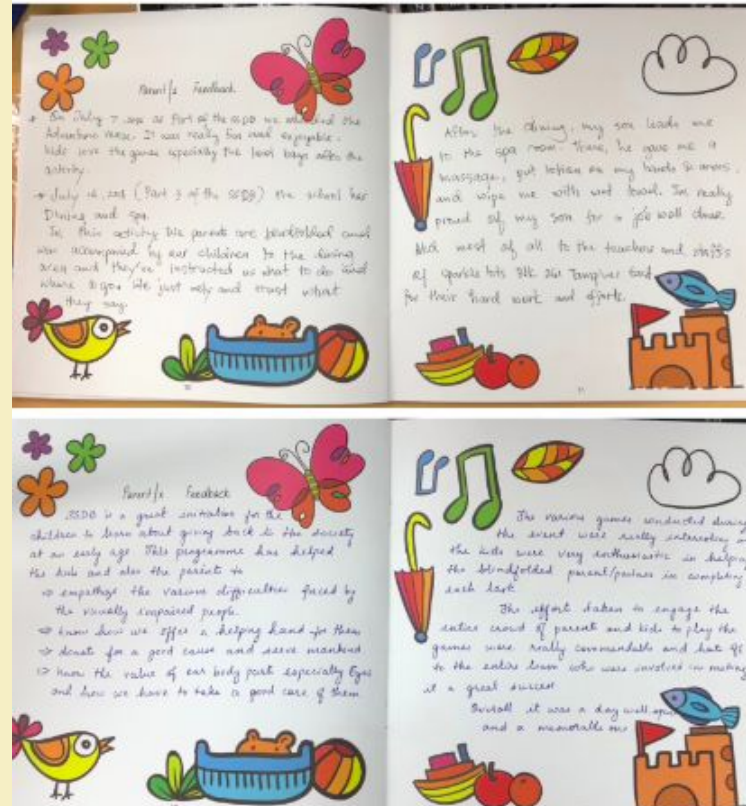 Parent/s Feedback
On July 7 as Part of the SSDB we attended the
Adventure. It was really fun and enjoyable.
kids love the games especially the loot bags after the
activity.
(Part 3 of the SSDB) the school has
Dining and spa.
In this activity We parents are blindfolded and
was accompanied by our children to the dining
area and they've instructed us what to do and
where to go. We just rely and trust what
they say.
10
After the dining, my son leads me
to the spa room. There, he gave me a
massage, put lotion on my hands & arms,
and wipe me with wet towel. I'm really
proud of my son for a job well done.
And most of all to the teachers and staffs
of sparkle tots Blk
for their hard work and efforts.
11
Parent/s Feedback
SSDB is a great initiative for the
children to learn about giving back to the society
at an early age. This programme has helped
the kids and also the parent to
⇒ empathize the various difficulties faced by
the visually impaired people.
⇒ know how we offer a helping hand for them
⇒ donate for a good cause and serve mankind
⇒ know the value of our body part especially Eyes
and how we have to take a good care of them
The various games conducted during
the event were really interesting
the kids were very enthusiastic in helping
the blindfolded parent/partner in completing
each task
The effort taken to engage the
entire crowd of parent and kids to play the
games were really commendable and hats off
to the entire team who were involved in making
it a great success
Overall it was a day well spent
and a memorable one